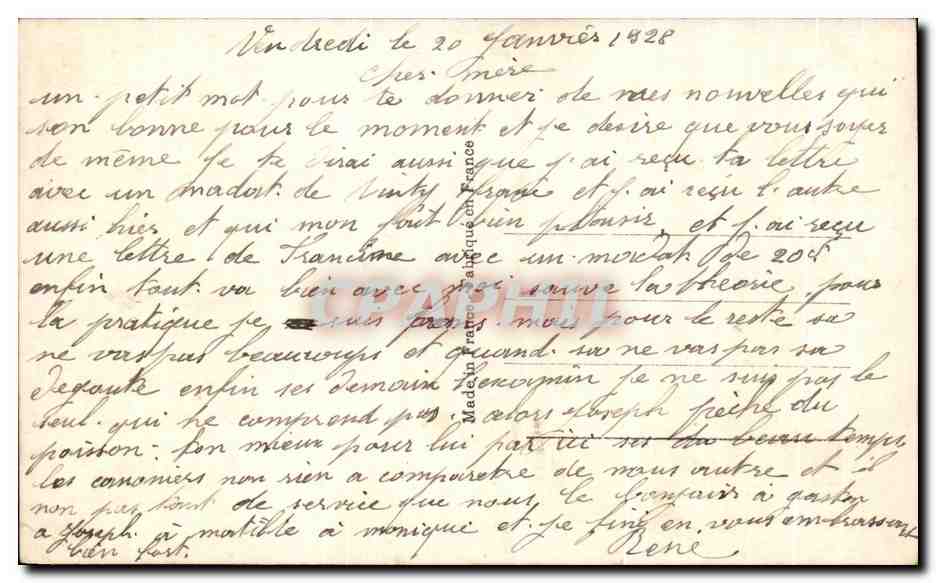 Vendredi le 20 Janviers 1928
cher mère
un petit mot pour te donner de mes nouvelles qui
son bonne pour le moment et je desire que vous soyer
de même je te dirai aussi que j'ai reçu ta lettre
avec un madat de vint franc et j'ai reçu l'autre
aussi hier et qui mon fait bien plaisir, et j'ai reçu
une lettre de Francine avec un modat de 20f
enfin tout va bien avec moi sauve la théorie pour
la pratique je suis mais pour le reste sa
ne vas pas beaucoups et quand sa ne vas pas sa
degoute enfin ses demain l'examin je ne suis pas le
seul qui ne comprend pas. alors Joseph pèche du
poisson ton mieux pour lui par ici ses du beau temps
les canoniers non rien a comparetre de nous autre et il
non pas tant de service que nous, le bonjours a gaston
a Joseph a matilde a monique et je fini en vous embrassant
bien fort. René
Made in France - Fabriqué en France
CPAPHIL